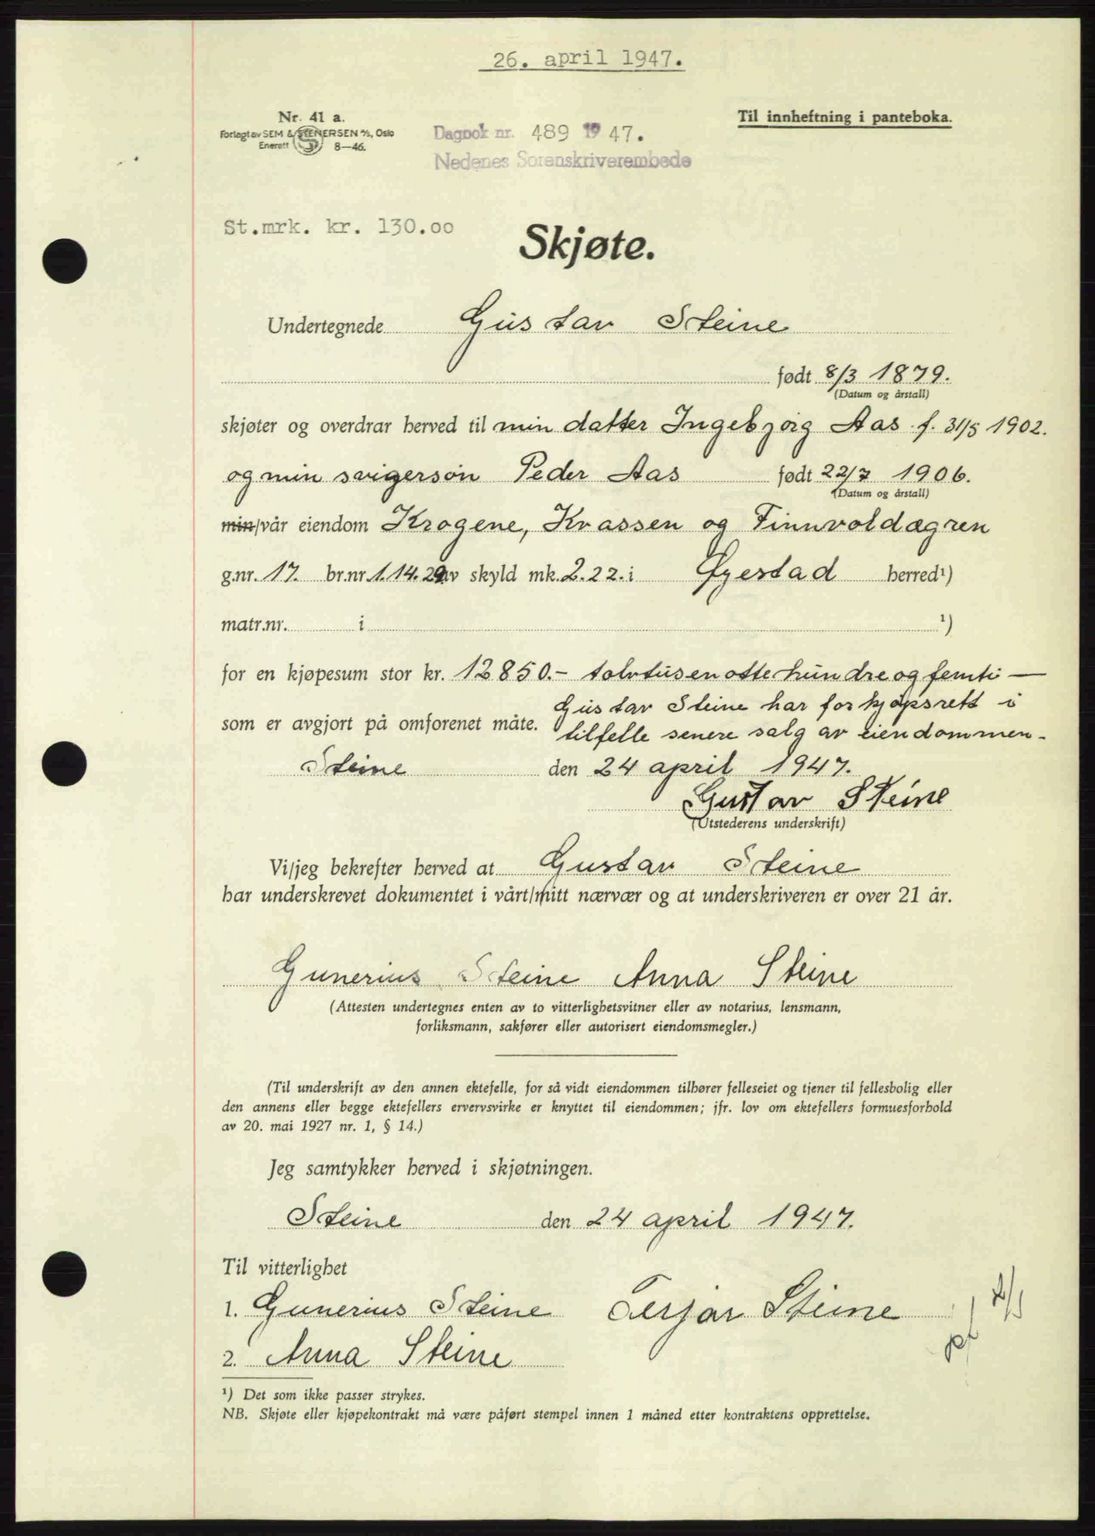 26. april 1947.
Nr. 41 a.
Til innheftning i panteboka.
Forlagt av SEM & STENERSEN A/S, Oslo
Enerett 8—46.
Dagbok nr. 489 1947.
Nedenes Sorenskriverembede
St.mrk. kr. 130.00
Skjøte.
Undertegnede Gustav Steine
født 8/3 1879.
(Datum og årstall)
skjøter og overdrar herved til min datter Ingebjørg Aas f. 31/5 1902.
og min svigersøn Peder Aas født 22/7 1906.
(Datum og årstall)
min/vår eiendom Krogene, Kvassen og Finnvoldægren
g.nr. 17. br.nr. 1.14.29 av skyld mk. 2.22. i Øyestad herred¹)
matr.nr. i ¹)
for en kjøpesum stor kr. 12850.- tolvtusenottehundre og femti —
som er avgjort på omforenet måte. Gustav Steine har forkjøpsrett i
tilfelle senere salg av eiendommen.
Steine den 24 april 1947.
Gustav Steine
(Utstederens underskrift)
Vi/jeg bekrefter herved at Gustav Steine
har underskrevet dokumentet i vårt/mitt nærvær og at underskriveren er over 21 år.
Gunerius Steine Anna Steine
(Attesten undertegnes enten av to vitterlighetsvitner eller av notarius, lensmann,
forliksmann, sakfører eller autorisert eiendomsmegler.)
(Til underskrift av den annen ektefelle, for så vidt eiendommen tilhører felleseiet og tjener til fellesbolig eller
den annens eller begge ektefellers ervervsvirke er knyttet til eiendommen; jfr. lov om ektefellers formuesforhold
av 20. mai 1927 nr. 1, § 14.)
Jeg samtykker herved i skjøtningen.
Steine den 24 april 1947.
Til vitterlighet
1. Gunerius Steine Terjar Steine
2. Anna Steine
¹) Det som ikke passer strykes.
NB. Skjøte eller kjøpekontrakt må være påført stempel innen 1 måned etter kontraktens opprettelse.